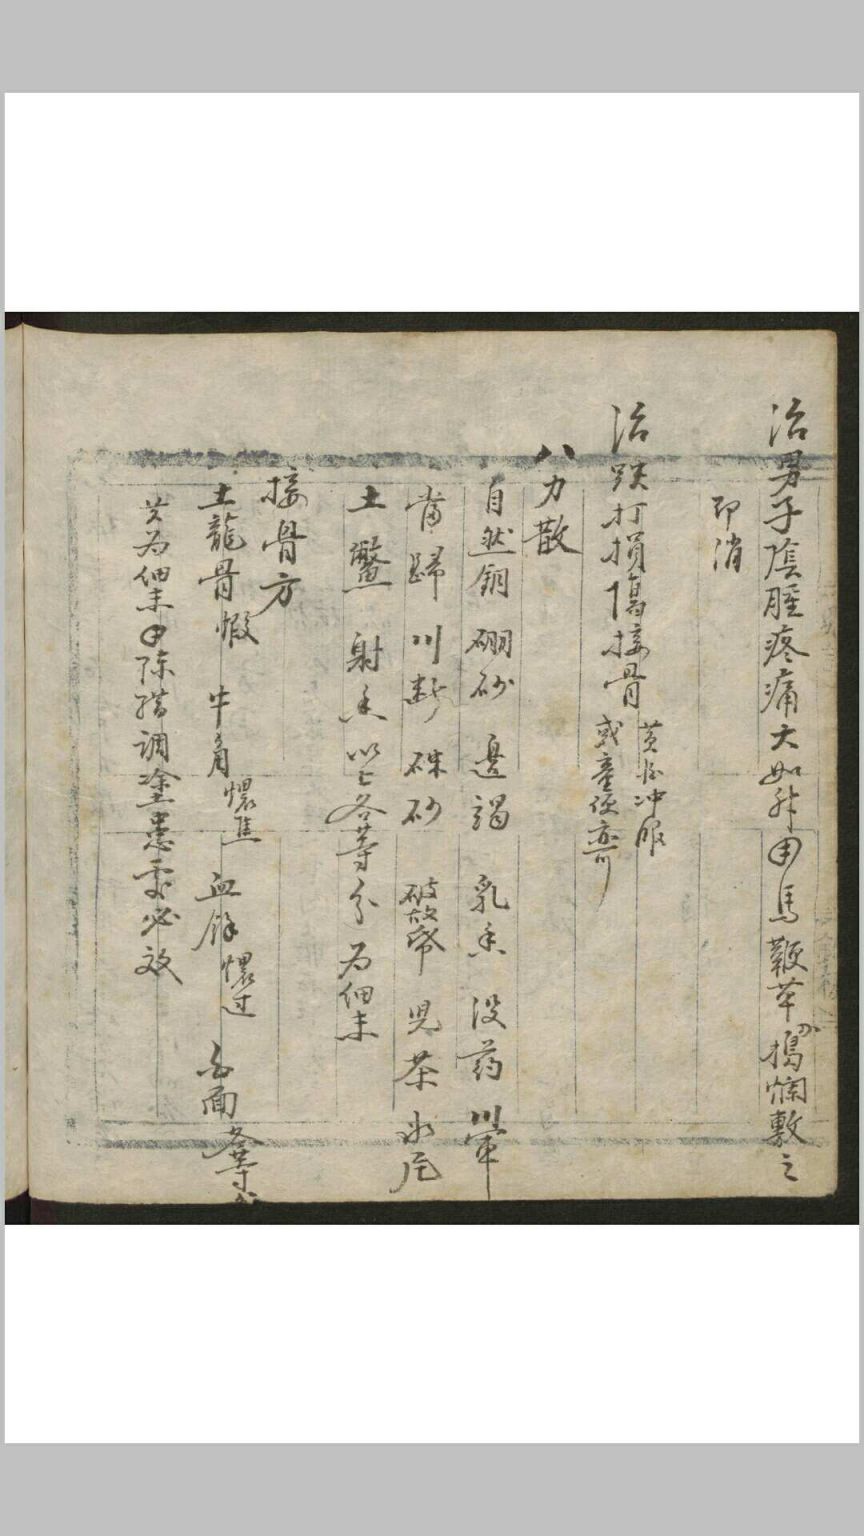 治男子陰腫疼痛大如升用馬鞭草搗爛敷之
即消
治跌打損傷接骨 黃酒冲服
或童便亦可
八力散
自然銅 硼砂 邊蝎 乳香 没药 川
當歸 川断 硃砂 破故紙 児茶 氷片
土鱉 射香 以上各等分为细末
接骨方
土龍骨煅 牛角 焦 血餘 过 白面各等分
共为细末用陈醋调塗患處必效